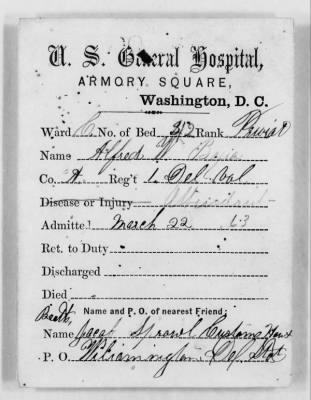 U. S. General Hospital,
ARMORY SQUARE,
Washington, D. C.
Ward C No. of Bed 32 Rank
Name Alfred W
Co. A Reg't 1 Del Vol
Disease or Injury
Admitted March 22 63
Ret. to Duty
Discharged
Died
Name and P. O. of nearest Friend,
Name Jacob Sprowl Customs House
P. O. Wilimington Del Stat